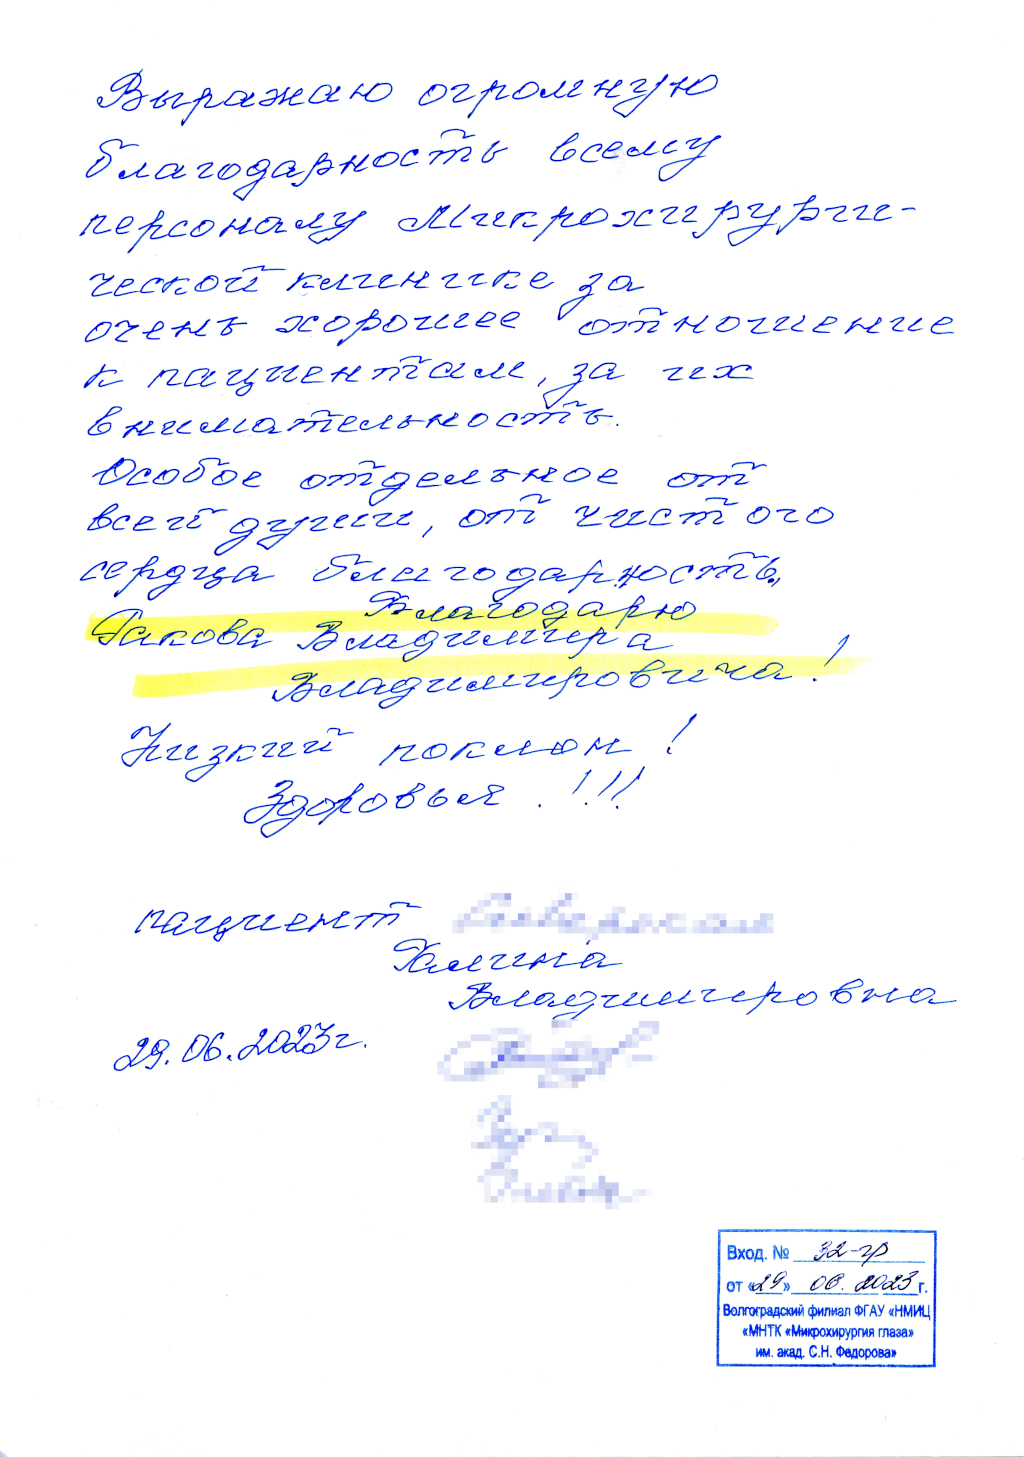 Выражаю огромную
благодарность всему
персоналу Микрохирурги-
ческой клинике за
очень хорошее отношение
к пациентам, за их
внимательность.
Особое отдельное от
всей души, от чистого
сердца благодарность,
Благодарю
Гакова Владимира
Владимировича!
Низкий поклон!
Здоровья.!!!
пациент
Галина
Владимировна
29.06.2023г.
Вход. № 32-гр
от «29» 06. 2023 г.
Волгоградский филиал ФГАУ «НМИЦ
«МНТК «Микрохирургия глаза»
им. акад. С.Н. Федорова»